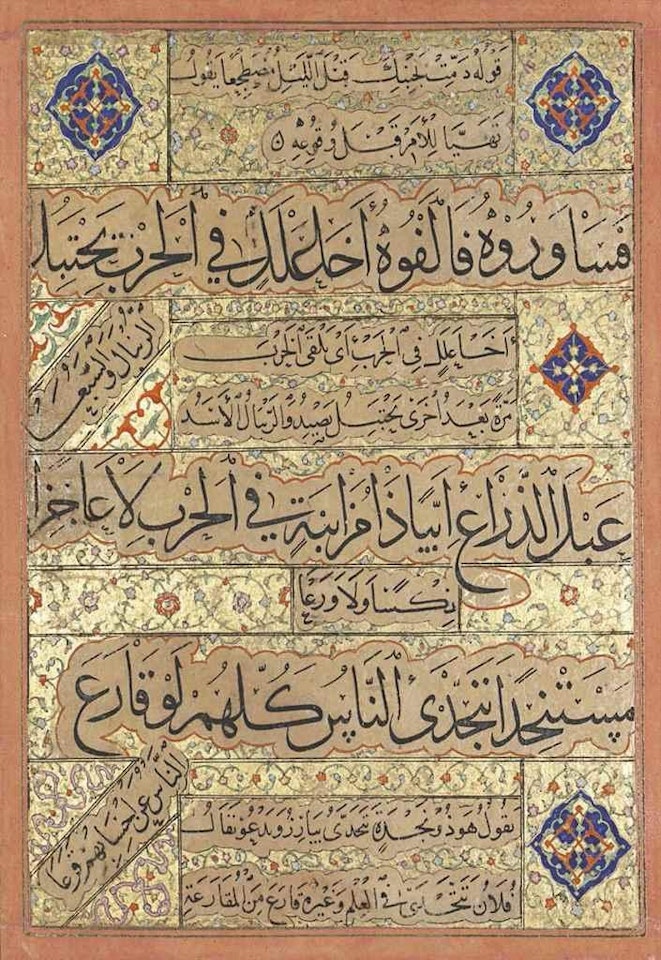 قوله دمث لجنبك قبل الليل مضطجعا يقول
تهيا للأمر قبل وقوعه
فساوروه فالفوه أخا علل في الحرب يحتبل
الريبال والسبعا
أخا علل في الحرب أي يلقى الحرب
مرة بعد أخرى يحتبل يصيد والريبال الأسد
عبل الذراع أبيا ذا مزابنة في الحرب لا عاجزا
نكسا ولا ورعا
مستنجدا يتحدى الناس كلهم لو قارع
الناس عن احسابهم قرعا
يقول هو ذو نجدة يتحدى يبارز ويدعو يقال
فلان يتحدى في العلم وغيره قارع من المقارعة